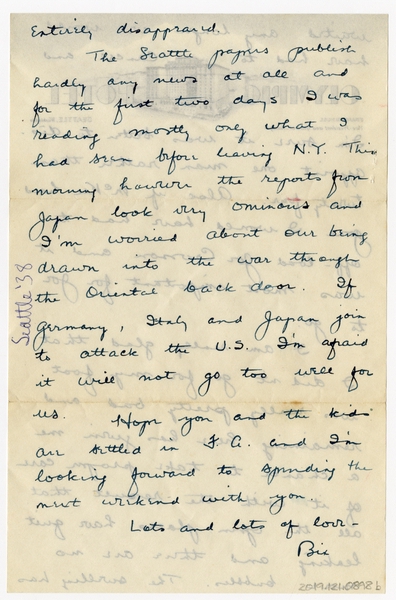 Entirely disappeared.
The Seattle papers publish
hardly any news at all and
for the first two days I was
reading mostly only what I
had seen before leaving N.Y. This
morning however the reports from
Japan look very ominous and
I'm worried about our being
drawn into the war through
the Oriental back door. If
Germany, Italy and Japan join
to attack the U.S. I'm afraid
it will not go too well for
us. Hope you and the kids
are settled in F.A. and I'm
looking forward to spending the
next weekend with you.
Lots and lots of love -
Bix
Seattle '38